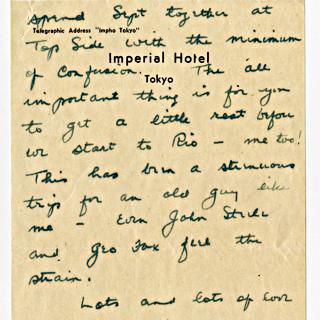 spend Sept together at
Telegraphic Address "Impho Tokyo"
Top Side with the minimum
Imperial Hotel
of Confusion. The all
Tokyo
important thing is for you
to get a little rest before
we start to Rio - me too!
This has been a strenuous
trip for an old guy like
me - Even John Steele
and Geo Fax feel the
strain.
Lots and lots of love